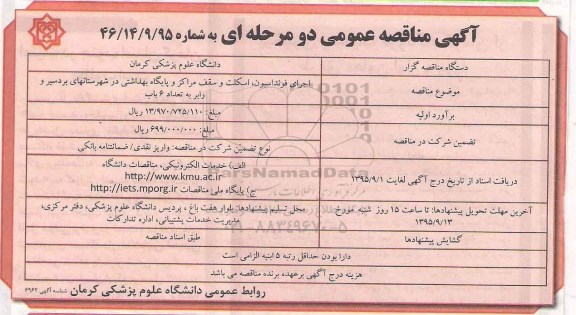 آگهی مناقصه عمومی دو مرحله ای به شماره ۴۶/۱۴/۹/۹۵
دستگاه مناقصه گزار
دانشگاه علوم پزشکی کرمان
موضوع مناقصه
اجرای فونداسیون، اسکلت و سقف مراکز و پایگاه بهداشتی در شهرستانهای بردسیر و
رابر به تعداد ۶ باب
برآورد اولیه
مبلغ: ۱۳/۹۷۰/۷۲۵/۱۱۰ ریال
تضمین شرکت در مناقصه
مبلغ: ۶۹۹/۰۰۰/۰۰۰ ریال
نوع تضمین شرکت در مناقصه: واریز نقدی/ ضمانتنامه بانکی
دریافت اسناد از تاریخ درج آگهی لغایت ۱۳۹۵/۹/۱
الف) خدمات الکترونیکی، مناقصات دانشگاه
http://www.kmu.ac.ir
ج) پایگاه ملی مناقصات http://iets.mporg.ir
آخرین مهلت تحویل پیشنهادها: تا ساعت ۱۵ روز شنبه مورخ
۱۳۹۵/۹/۱۳
محل تسلیم پیشنهادها: بلوار هفت باغ ، پردیس دانشگاه علوم پزشکی، دفتر مرکزی،
مدیریت خدمات پشتیبانی، اداره تدارکات
گشایش پیشنهادها
طبق اسناد مناقصه
دارا بودن حداقل رتبه ۵ ابنیه الزامی است
هزینه درج آگهی برعهده برنده مناقصه می باشد
روابط عمومی دانشگاه علوم پزشکی کرمان شناسه آگهی ۶۹۶۲
ParsNamadData
۰۲۱-۸۸۳۴۹۶۷۰-۵